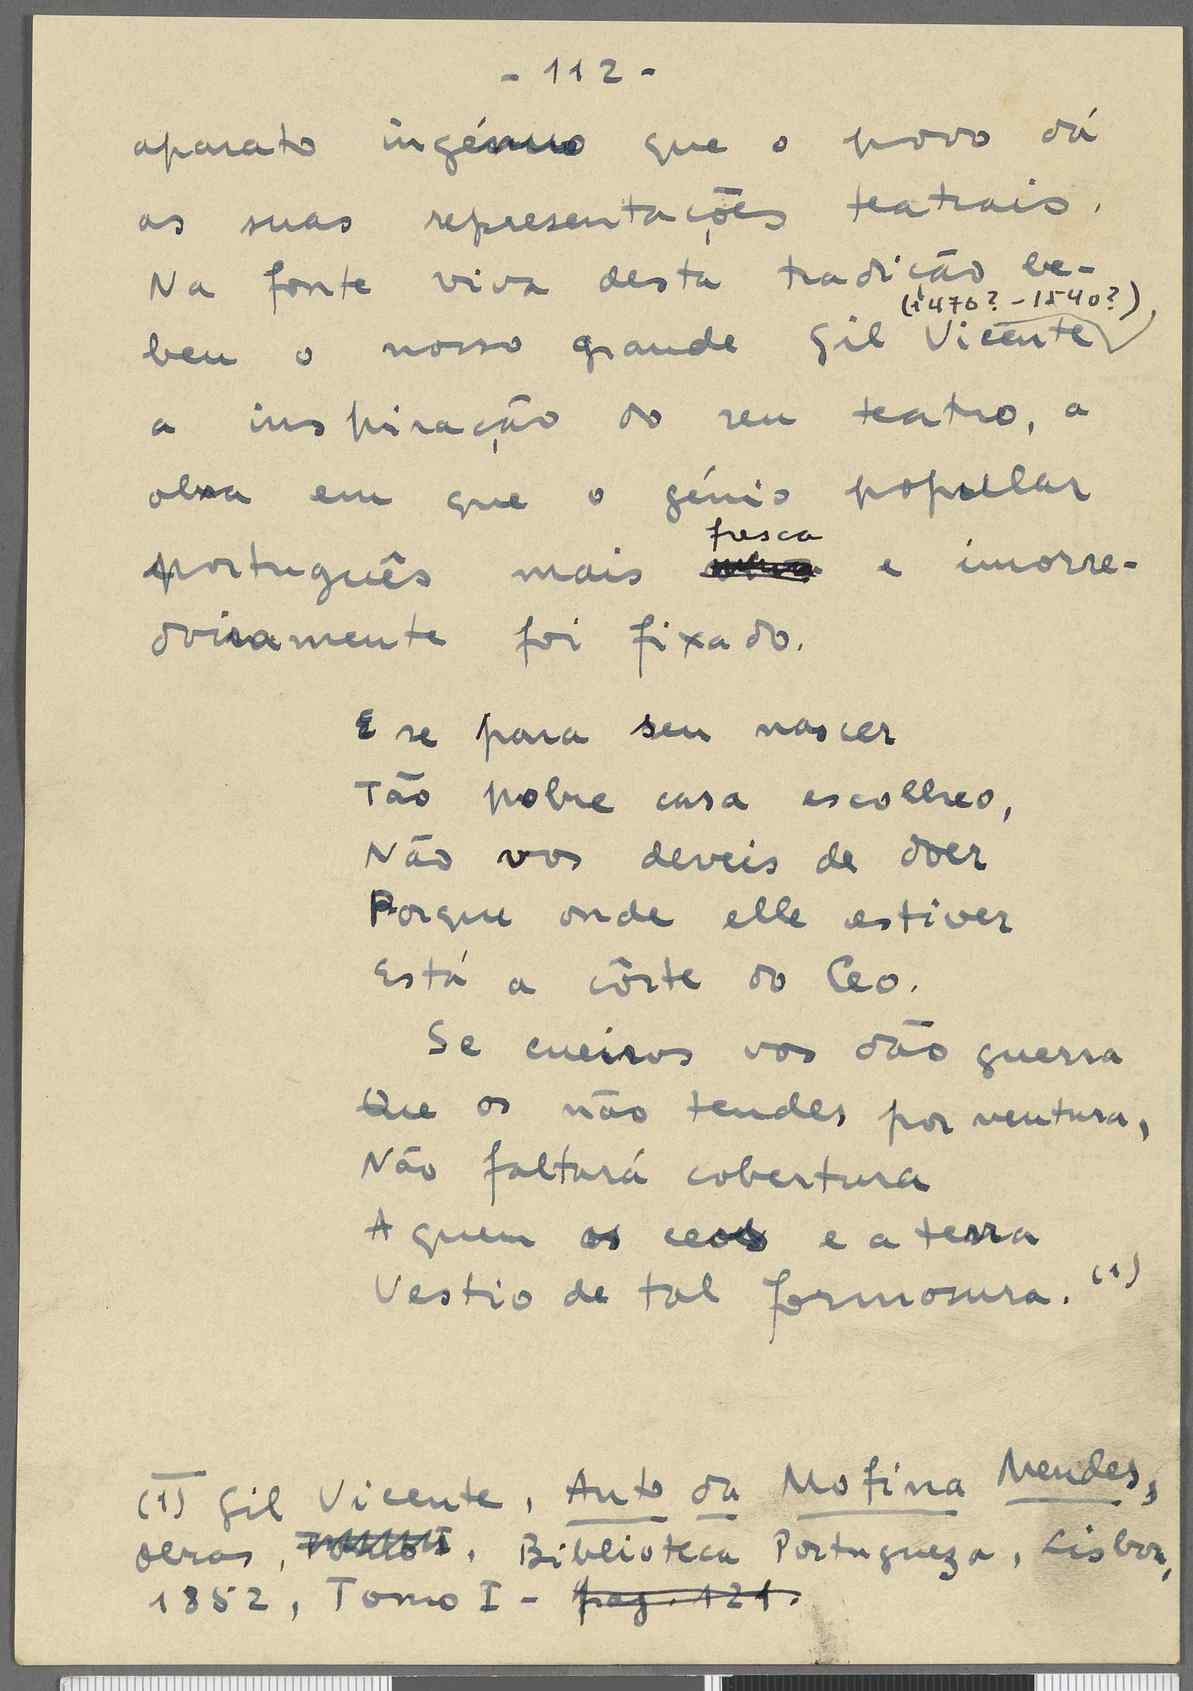 - 112 -
aparato ingénuo que o povo dá
as suas representações teatrais.
Na fonte viva desta tradição be-
(1470? - 1540?),
beu o nosso grande Gil Vicente
a inspiração do seu teatro, a
obra em que o génio popular
fresca
português mais e imorre-
doiramente foi fixado.
E se para seu nascer
Tão pobre casa escolheo,
Não vos deveis de doer
Porque onde elle estiver
Está a côrte do Ceo.
Se cueiros vos dão guerra
Que os não tendes por ventura,
Não faltará cobertura
A quem os ceos e a terra
Vestio de tal formosura. (1)
(1) Gil Vicente, Auto da Mofina Mendes,
obras, Tomo I, Biblioteca Portugueza, Lisboa,
1852, Tomo I - pag. 121.